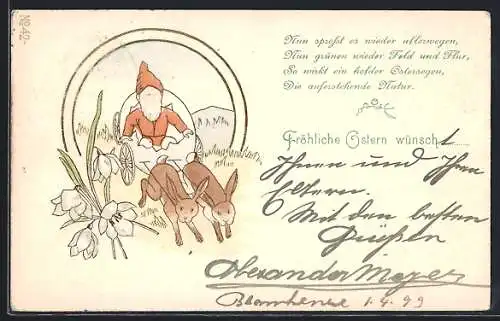 No 42.
Nun sproßt es wieder allerwegen,
Nun grünen wieder Feld und Flur,
So wirkt ein holder Ostersegen,
Die auferstehende Natur.
Fröhliche Ostern wünscht
Ihnen und Ihren
Eltern.
Mit den besten
Grüßen
Alexander Meyer
Blankenese 1.4.99